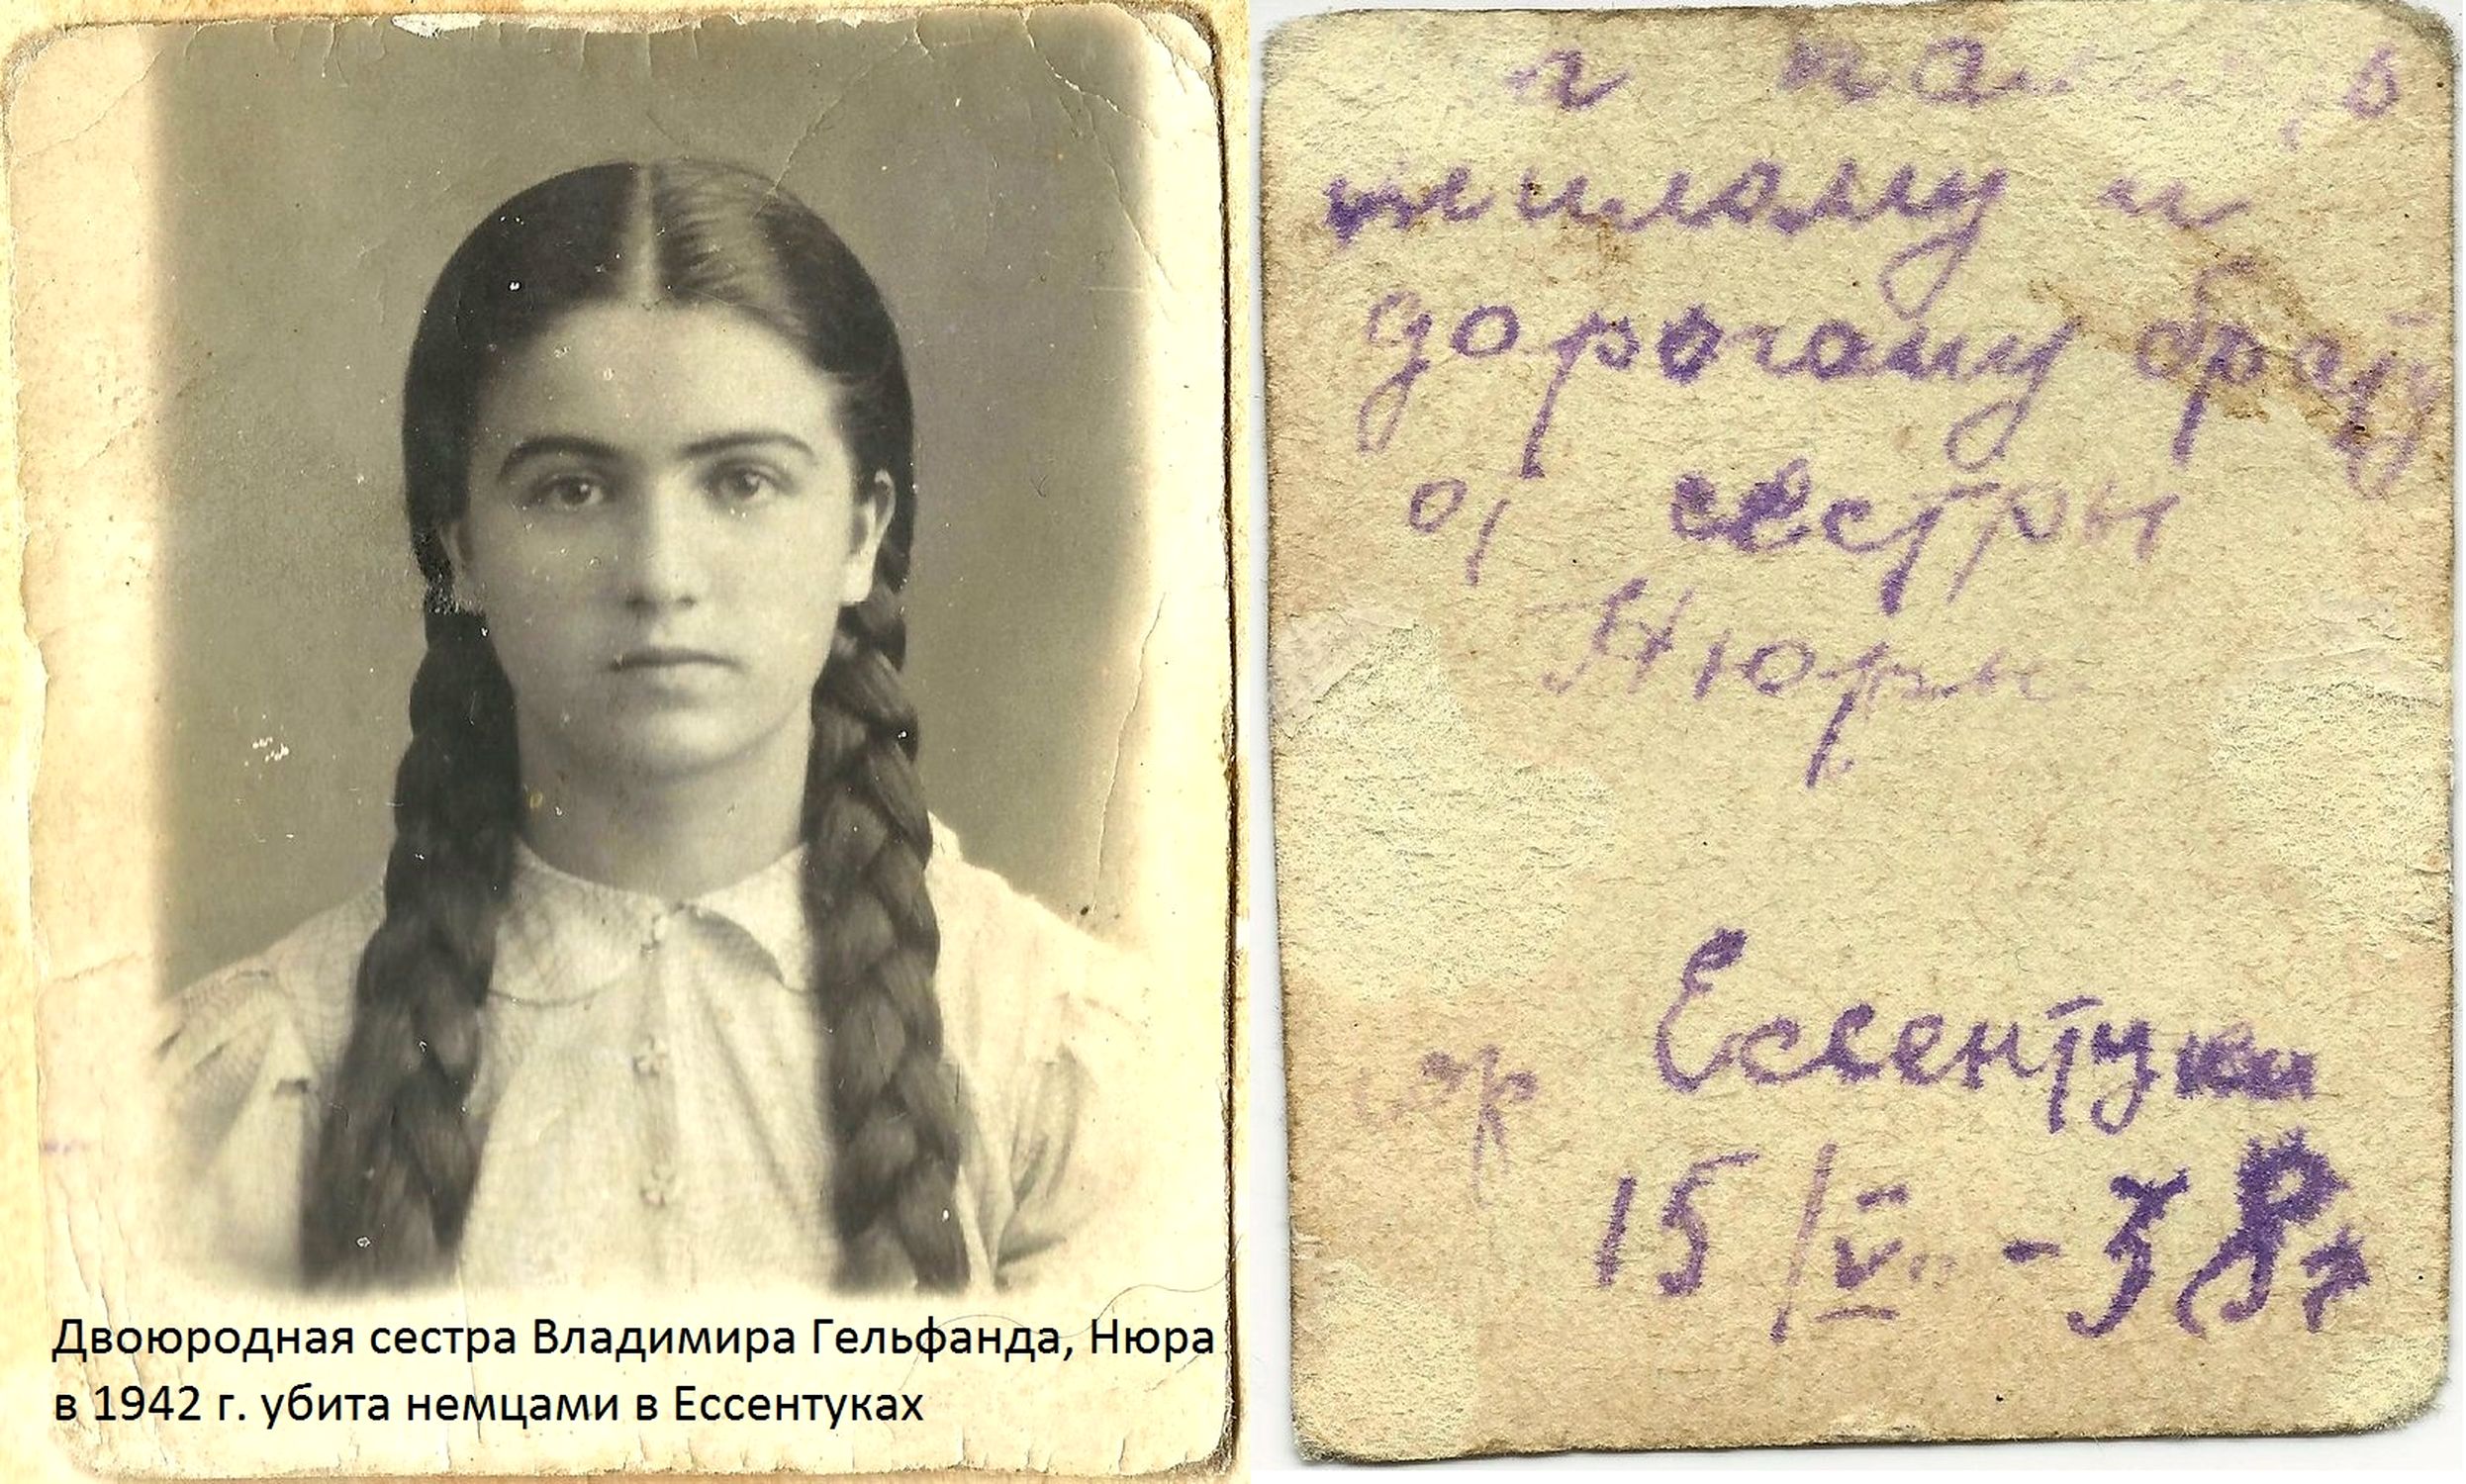 Двоюродная сестра Владимира Гельфанда, Нюра
в 1942 г. убита немцами в Ессентуках
милому и
дорогому брату
от сестры
Нюры
гор Ессентуки
15/V - 38г